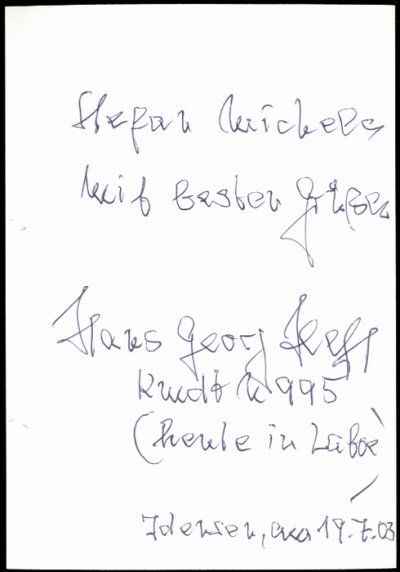 Stefan Michels
mit besten Grüßen
Hans Georg Hess
Kmdt U 995
(heute in Laboe)
Idensen, am 19.7.03